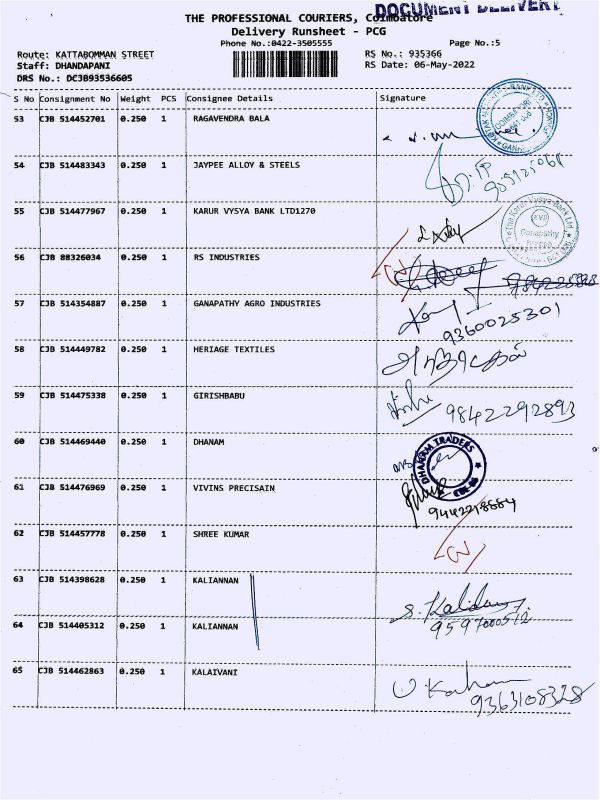 DOCUMENT DELIVERY
THE PROFESSIONAL COURIERS, Coimbatore
Delivery Runsheet - PCG
Phone No.:0422-3505555
Page No.:5
Route: KATTABOMMAN STREET
RS No.: 935366
Staff: DHANDAPANI
RS Date: 06-May-2022
DRS No.: DCJB93536605
S No Consignment No Weight PCS Consignee Details Signature
53 CJB 514452701 0.250 1 RAGAVENDRA BALA
54 CJB 514483343 0.250 1 JAYPEE ALLOY & STEELS
55 CJB 514477967 0.250 1 KARUR VYSYA BANK LTD1270
The Karur Vysya Bank Ltd.
KVB
Ganapathy
Branch
56 CJB 88326034 0.250 1 RS INDUSTRIES
57 CJB 514354887 0.250 1 GANAPATHY AGRO INDUSTRIES
9360025301
58 CJB 514449782 0.250 1 HERIAGE TEXTILES
59 CJB 514475338 0.250 1 GIRISHBABU
9842292893
60 CJB 514469440 0.250 1 DHANAM
DHANAM TRADERS
61 CJB 514476969 0.250 1 VIVINS PRECISAIN
9442218884
62 CJB 514457778 0.250 1 SHREE KUMAR
63 CJB 514398628 0.250 1 KALIANNAN
64 CJB 514405312 0.250 1 KALIANNAN
65 CJB 514462863 0.250 1 KALAIVANI
9363108328